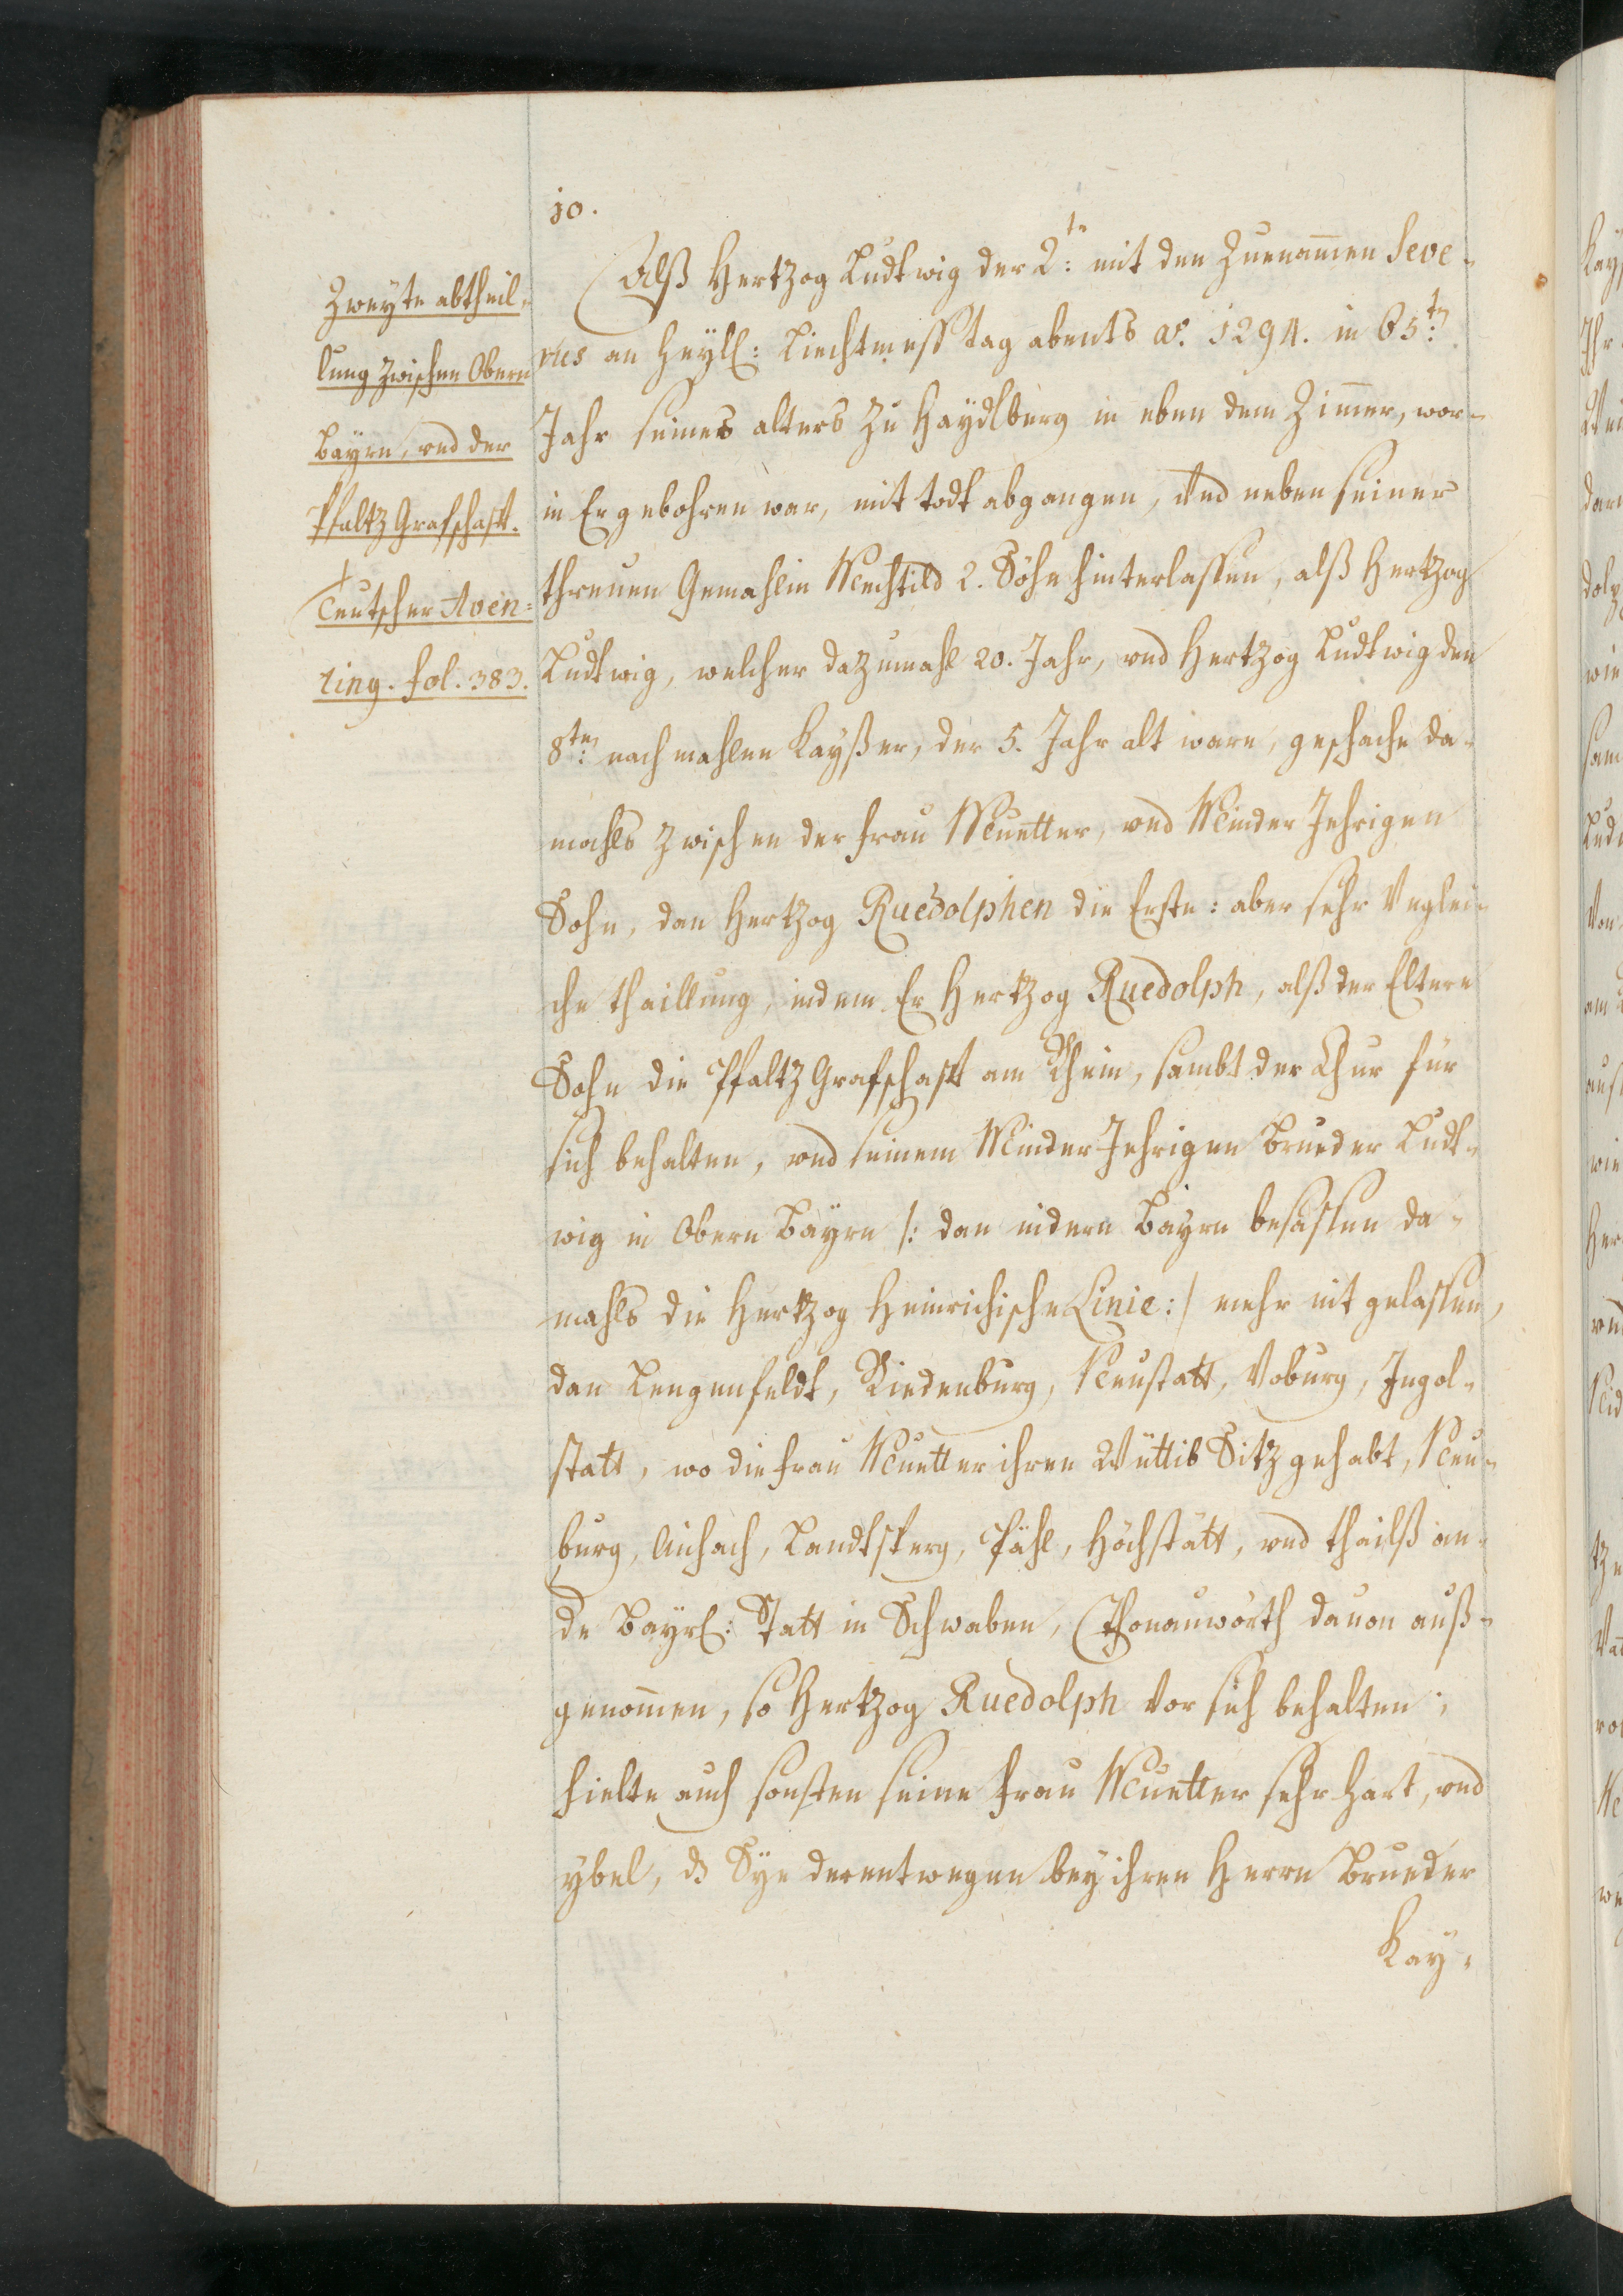 10.
Zweyte abtheil¬
lung zwischen Obern
Bayrn, vnd der
Pfaltz Grafschafft.
+
Teutscher Aven¬
ting. fol. 383.
Alß Hertzog Ludtwig der 2te: mit den Zuenam̄en Seve¬
rus an heyl: Liechtmess tag abents ao. 1294. in 65ten:
Jahr seines alters Zu Haydlberg in eben dem Zim̄er, wor¬
in Er gebohren war, mit todt abgangen, vnd neben seiner
threuen Gemahlin Mechtild 2. Söhn hinterlassen, alß Hertzog
Ludtwig, welcher dazumahl 20. Jahr, vnd Hertzog Ludtwig den
8ten: nachmahlen Kayßer, der 5. Jahr alt ware, geschache da¬
mahls zwischen der frau Muetter, vnd Minder Jehrigen
Sohn, dan Hertzog Ruedolphen die Erste: aber sehr Vnglei¬
che thaillung, indem Er Hertzog Ruedolph, alß der Eltere
Sohn die Pfaltz Grafschafft am Rhein, sambt der Chur für
sich behalten, vnd seinem Minder Jehrigen Brueder Ludt¬
wig in Obern Bayrn /: dan nidern Bayrn besassen da¬
mahls die Hertzog Heinrichische Linie :/ mehr nit gelassen,
dan Lengenfeldt, Riedenburg, Neustatt, Voburg, Ingol¬
statt, wo die frau Muetter ihren Wüttib Sitz gehabt, Neu¬
burg, Aichach, Landtsperg, Pähl, Höchstätt, vnd thailß an¬
de Bayrl: Statt in Schwaben, Thonauwörth dauon auß¬
genom̄en, so Hertzog Ruedolph vor sich behalten;
hielte auch sonsten seine frau Muetter sehr hart, vnd
ybel, ds Sye derentwegen bey ihren Herrn Brueder
Kay¬